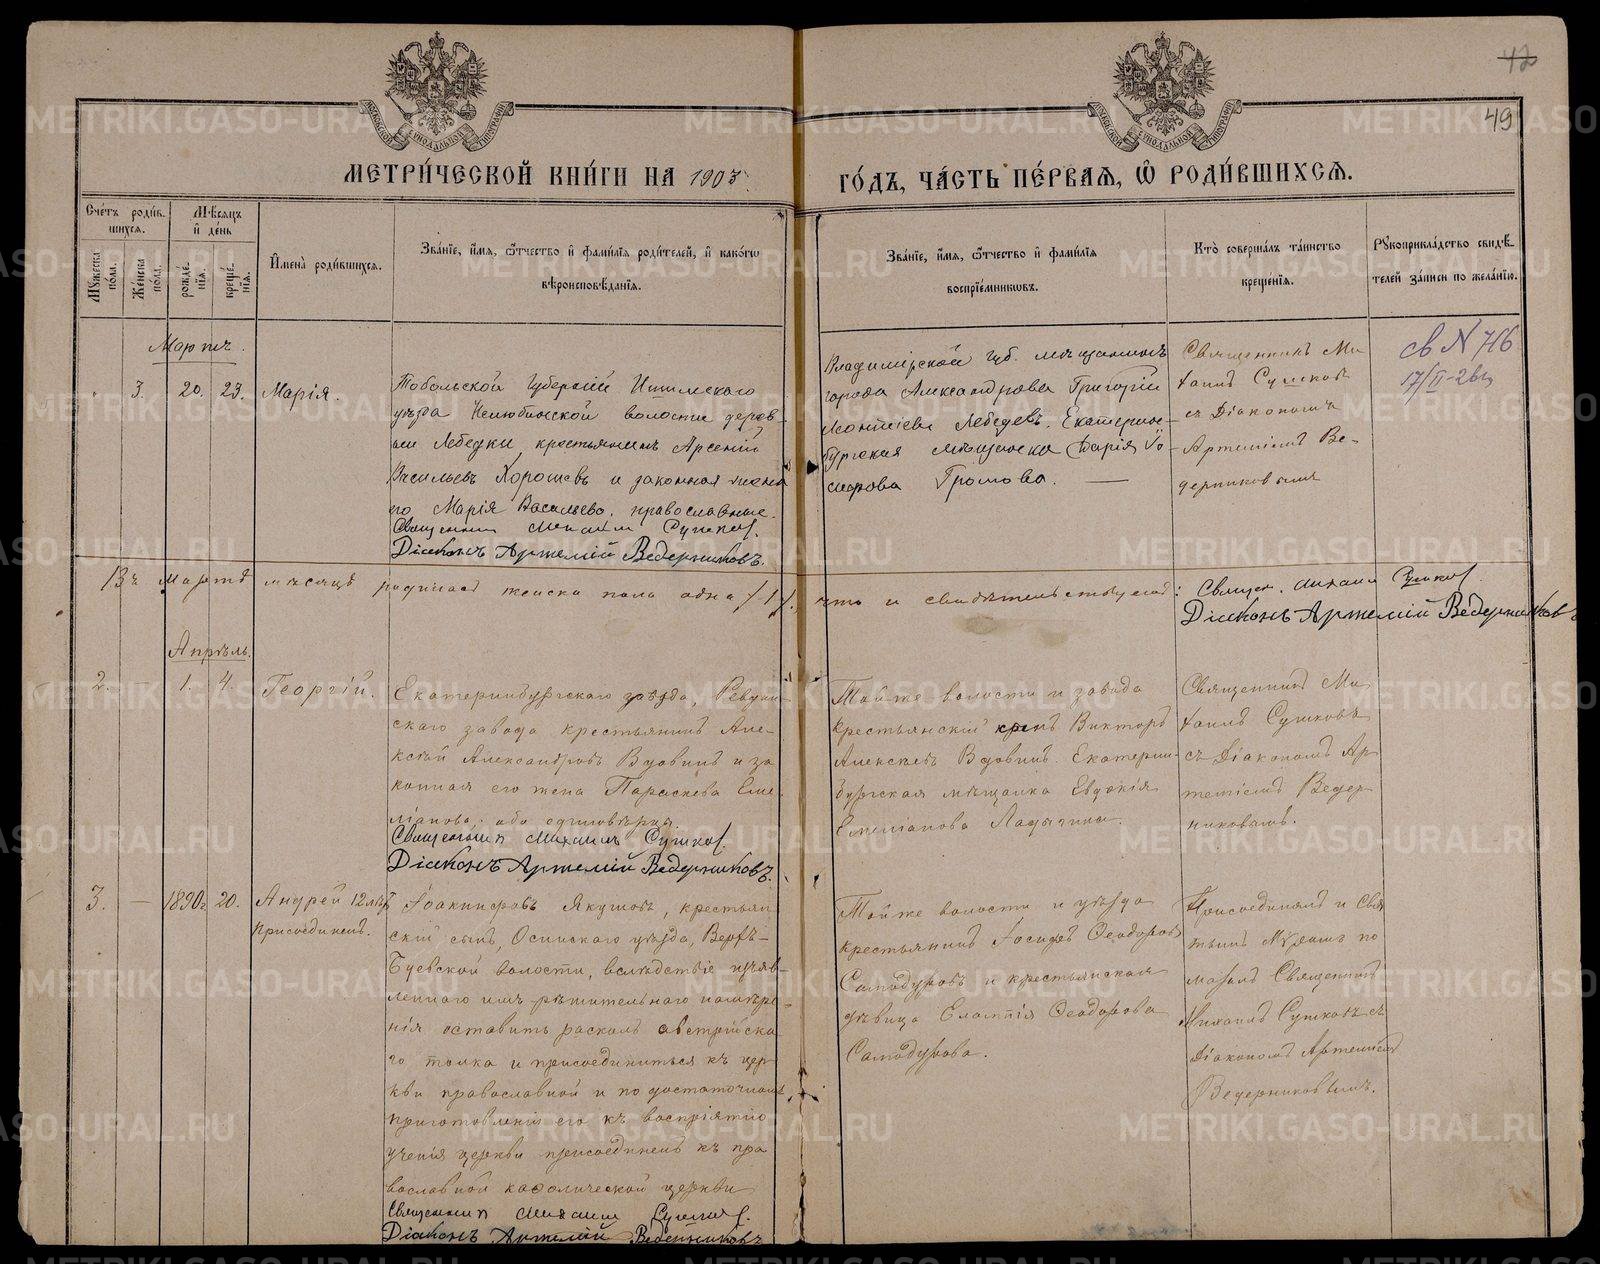 42
49
МЕТРИ́ЧЕСКОЙ КНИ́ГИ НА 1903
ГО́ДЪ, ЧА́СТЬ ПЕ́РВАѦ, Ѡ РОДИ́ВШИХСѦ.
Сче́тъ роди́в-
шихсѧ.
Мѣ́сѧцъ
и де́нь
Мꙋ́жеска пола.
Же́нска пола.
рожде́-
нїѧ.
креще́-
нїѧ.
Имена̀ роди́вшихсѧ.
Зва́нїе, и́мѧ, ѻ҆́тчество и фами́лїѧ роди́телей, и како́гѡ
вѣроисповѣ́данїѧ.
Зва́нїе, и́мѧ, ѻ҆́тчество и фами́лїѧ
воспрїе́мникѡвъ.
Кто̀ соверша́лъ та́инство
креще́нїѧ.
Рꙋкоприкла́дство свидѣ́-
телей за́писи по жела́нїю.
Мартъ.
3. 20. 23. Марія.
Тобольской Губерніи Ишимскаго
уѣзда волости дерев-
ни Лебедки крестьянинъ Арсеній
Васильевъ Хорошевъ и законная жена
его Марія Васильева, православные.
Священникъ Михаилъ Сушковъ.
Діаконъ Артемій Ведерниковъ.
Владимірской губ. мѣщанинъ
города Александрова Григорій
Леонтіевъ Лебедевъ. Екатерин-
бургская мѣщанка Дарія
Громова. —
Священникъ Ми-
хаилъ Сушковъ
съ Діакономъ
Артеміемъ Ве-
дерниковымъ
св N 746
17/II-26г
Въ Мартѣ мѣсяцѣ родилась женска пола одна /1/. что и свидѣтельствуемъ: Свящ. Михаилъ Сушковъ.
Діаконъ Артемій Ведерниковъ
Апрѣль.
2. — 1. 4. Георгій.
Екатеринбургскаго уѣзда, Ревдин-
скаго завода крестьянинъ Але-
ксѣй Александровъ Вдовинъ и за
конная его жена Параскева Еме
ліанова, оба единовѣрцы.
Священникъ Михаилъ Сушковъ.
Діаконъ Артемій Ведерниковъ.
Той же волости и завода
крестьянскій сынъ Викторъ
Алексѣевъ Вдовинъ. Екатерин-
бургская мѣщанка Евдокія
Емеліанова Ладыгина.
Священникъ Ми
хаилъ Сушковъ
съ Діакономъ Ар
теміемъ Ведер
никовымъ.
3. — 1890г 20. Андрей 12 лѣтъ
присоединенъ.
Іоакимовъ Якушовъ, крестьян
скій сынъ, Осинскаго уѣзда, Верхъ-
Буевской волости, вслѣдствіе изъяв-
леннаго имъ рѣшительнаго намѣре-
нія оставить расколъ австрійска
го толка и присоединиться къ цер
кви православной и по достаточномъ
приготовленіи его къ воспріятію
ученія церкви присоединенъ къ пра
вославной каѳолической церкви
Священникъ Михаилъ Сушковъ.
Діаконъ Артемій Ведерниковъ
Той же волости и уѣзда
крестьянинъ Іосифъ Ѳеодоровъ
Самодуровъ и крестьянская
дѣвица Ѳеодорова
Самодурова.
Присоединялъ и Свя
тымъ Мѵромъ по
мазалъ Священникъ
Михаилъ Сушковъ съ
Діакономъ Артеміемъ
Ведерниковымъ.
METRIKI.GASO-URAL.RU